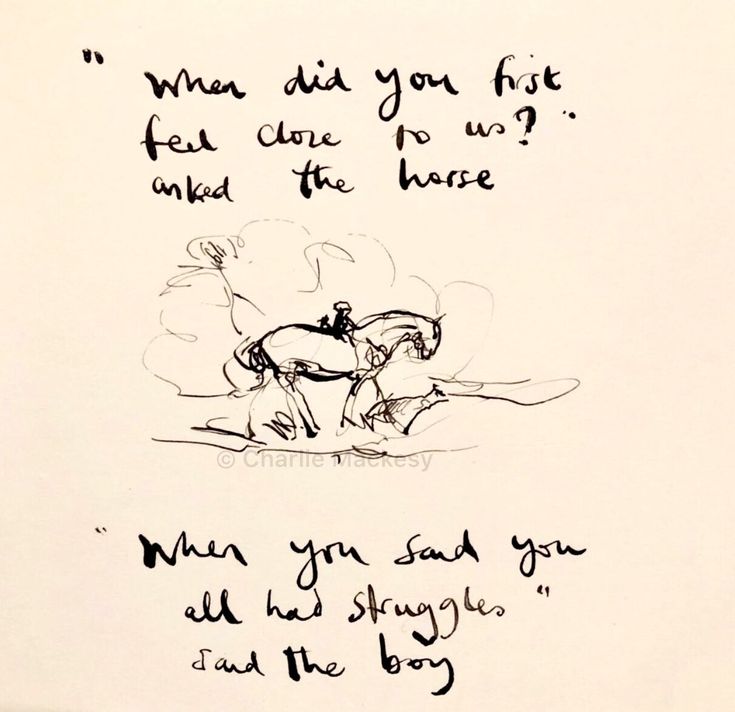 "When did you first
feel close to us?"
asked the horse
© Charlie Mackesy
"When you said you
all had struggles"
said the boy